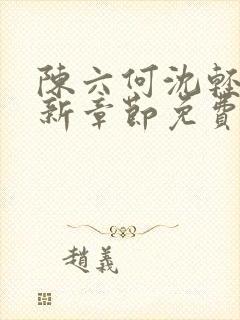 陳六何沈輕
新章節免費
趙義